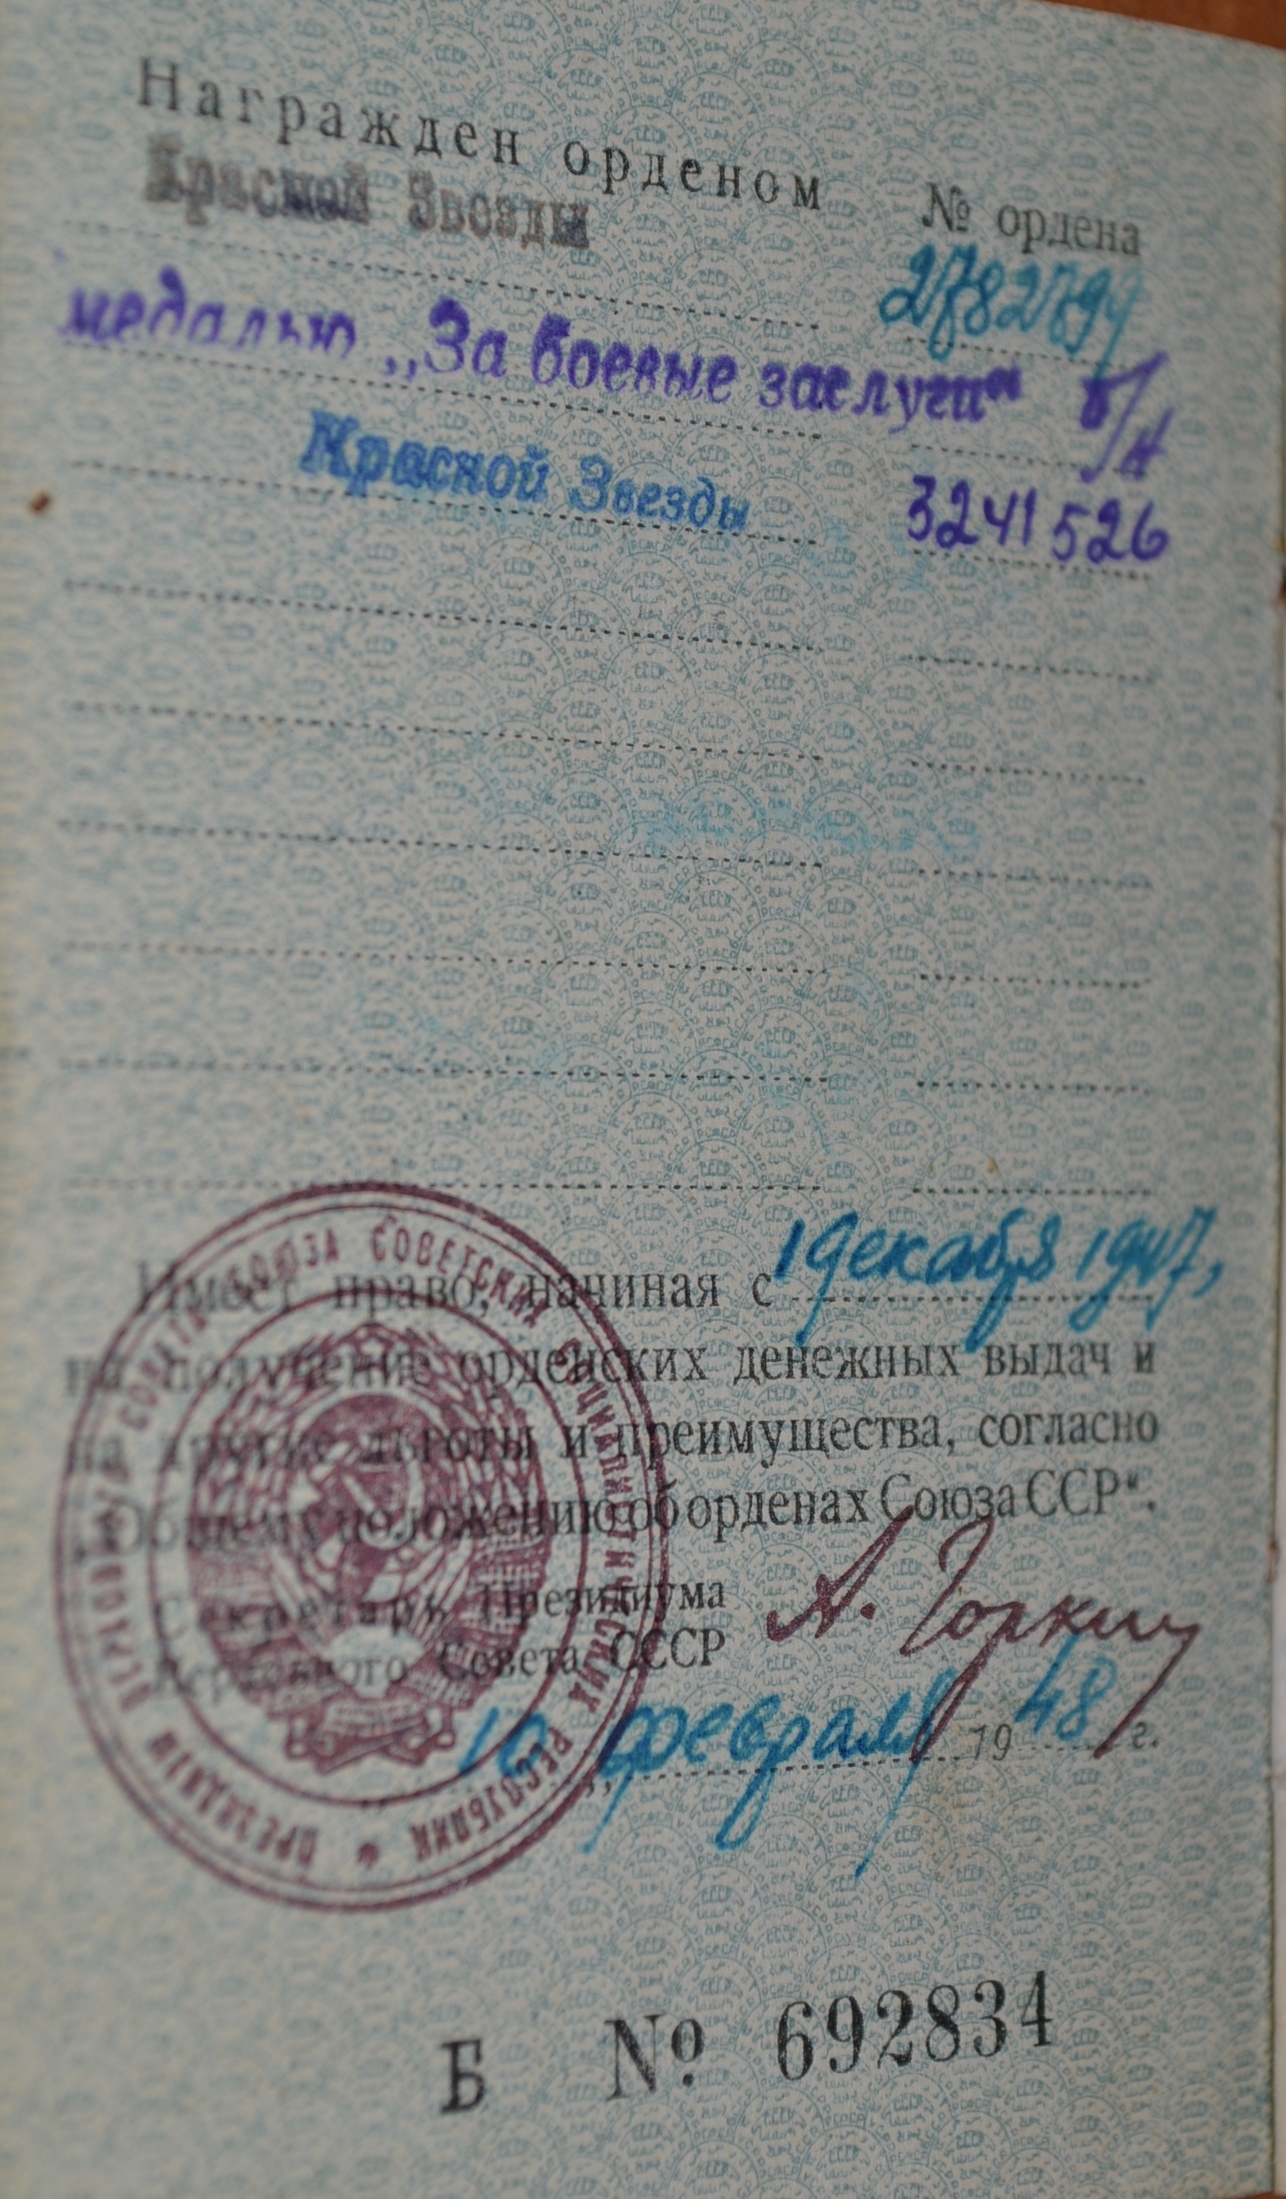 Награжден орденом № ордена
Красной Звезды 2782794
медалью „За боевые заслуги“ б/н
Красной Звезды 3241526
Имеет право, начиная с 1 декабря 1947,
на получение орденских денежных выдач и
на другие льготы и преимущества, согласно
„Общему положению об орденах Союза ССР“.
Секретарь Президиума
Верховного Совета СССР А. Горкин
10 февраля 19 48 г.
ПРЕЗИДИУМ ВЕРХОВНОГО СОВЕТА СОЮЗА СОВЕТСКИХ СОЦИАЛИСТИЧЕСКИХ РЕСПУБЛИК
Б № 692834